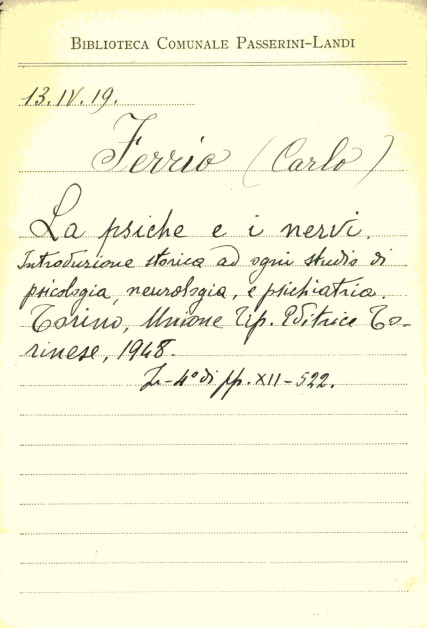 BIBLIOTECA COMUNALE PASSERINI-LANDI
13.IV.19.
Ferrio (Carlo)
La psiche e i nervi.
Introduzione storica ad ogni studio di
psicologia, neurologia, e psichiatria.
Torino, Unione Tip. Editrice To-
rinese, 1948.
In-4° di pp. XII-522.